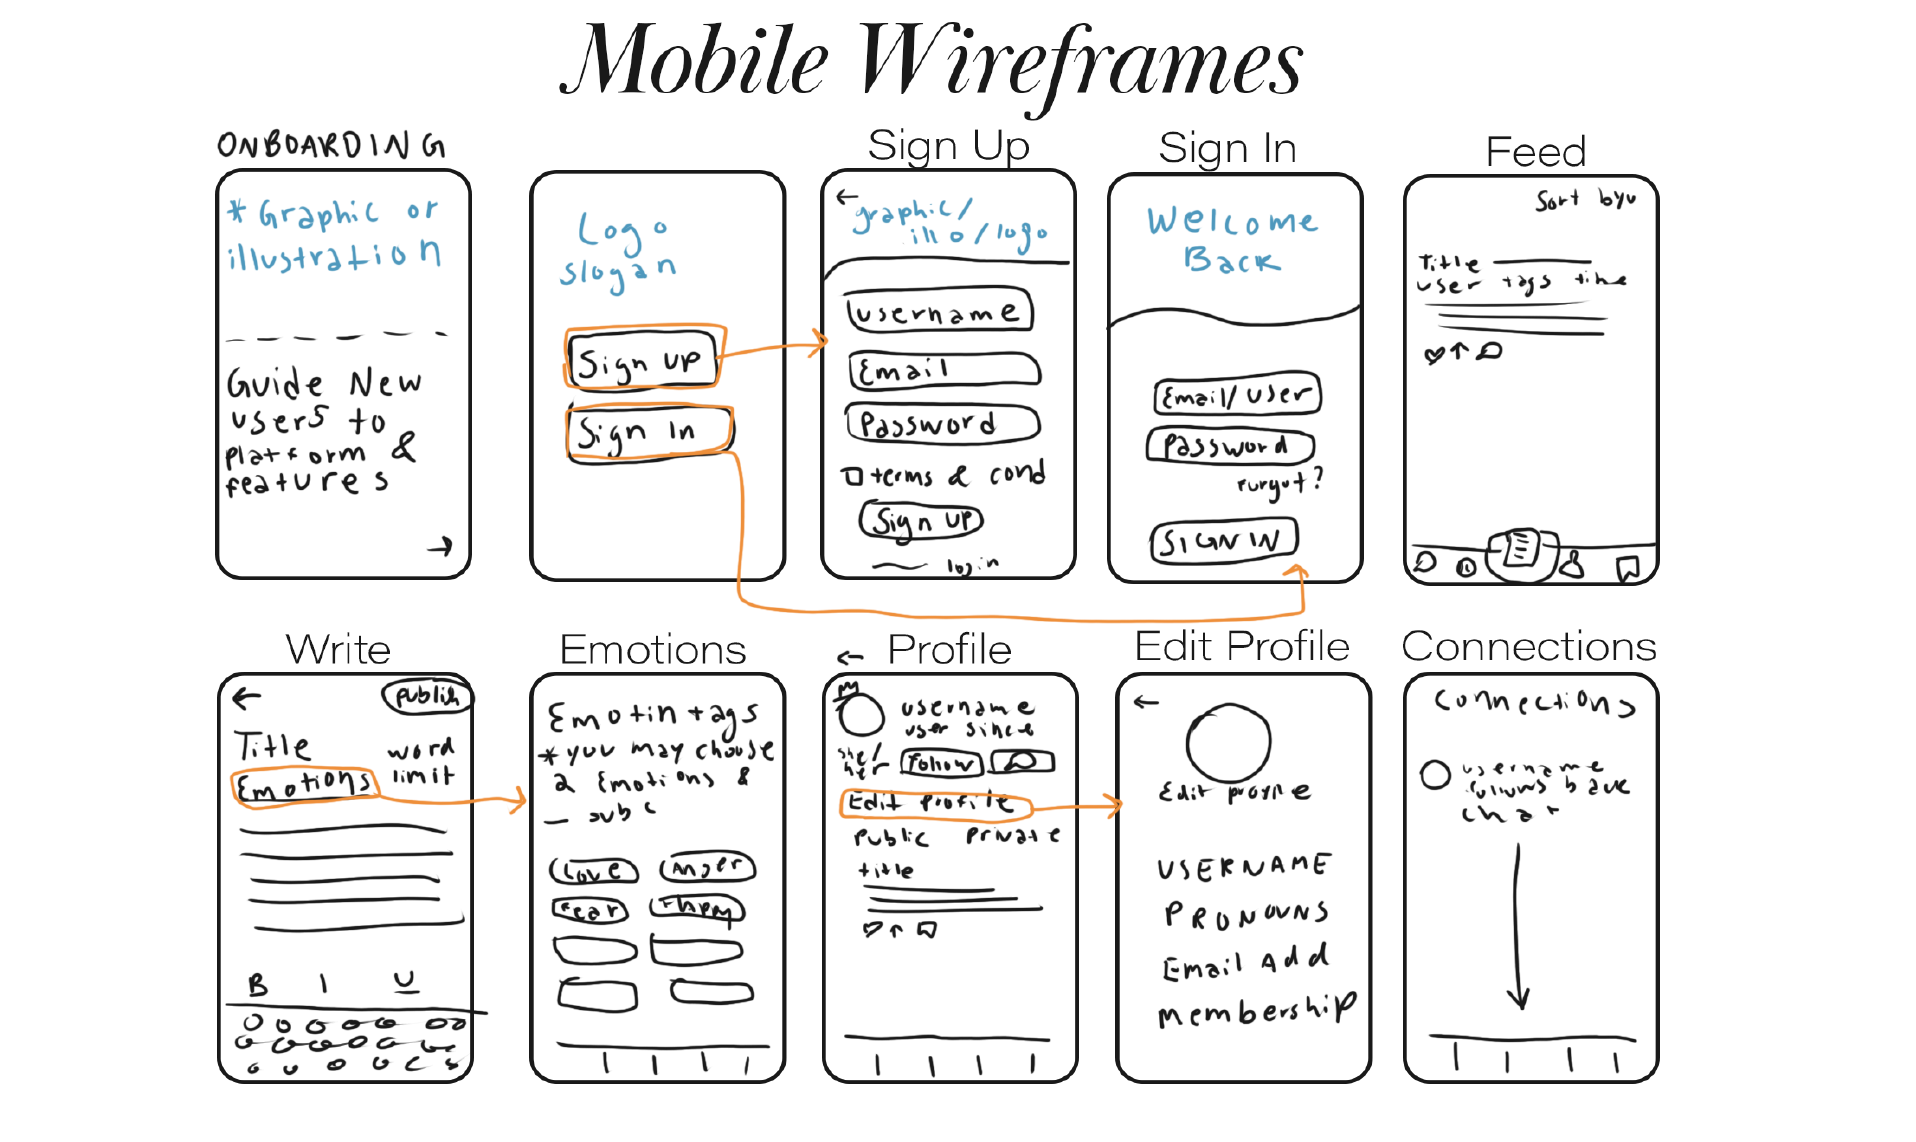 Mobile Wireframes
ONBOARDING
* Graphic or
illustration
Guide New
users to
platform &
features
Logo
slogan
Sign up
Sign In
Sign Up
graphic/
illo/logo
username
Email
Password
terms & cond
Sign up
login
Sign In
Welcome
Back
Email/user
Password
furgot?
SIGN IN
Feed
Sort by
Title
user tags time
Write
publish
Title
word
limit
Emotions
B I U
Emotions
Emotin tags
* you may choose
2 Emotions &
sub
Love
Anger
Fear
Profile
username
user since
she/
her
follow
Edit profile
public private
title
Edit Profile
Edit
USERNAME
PRONOUNS
Email Add
membership
Connections
Connections
username
chat